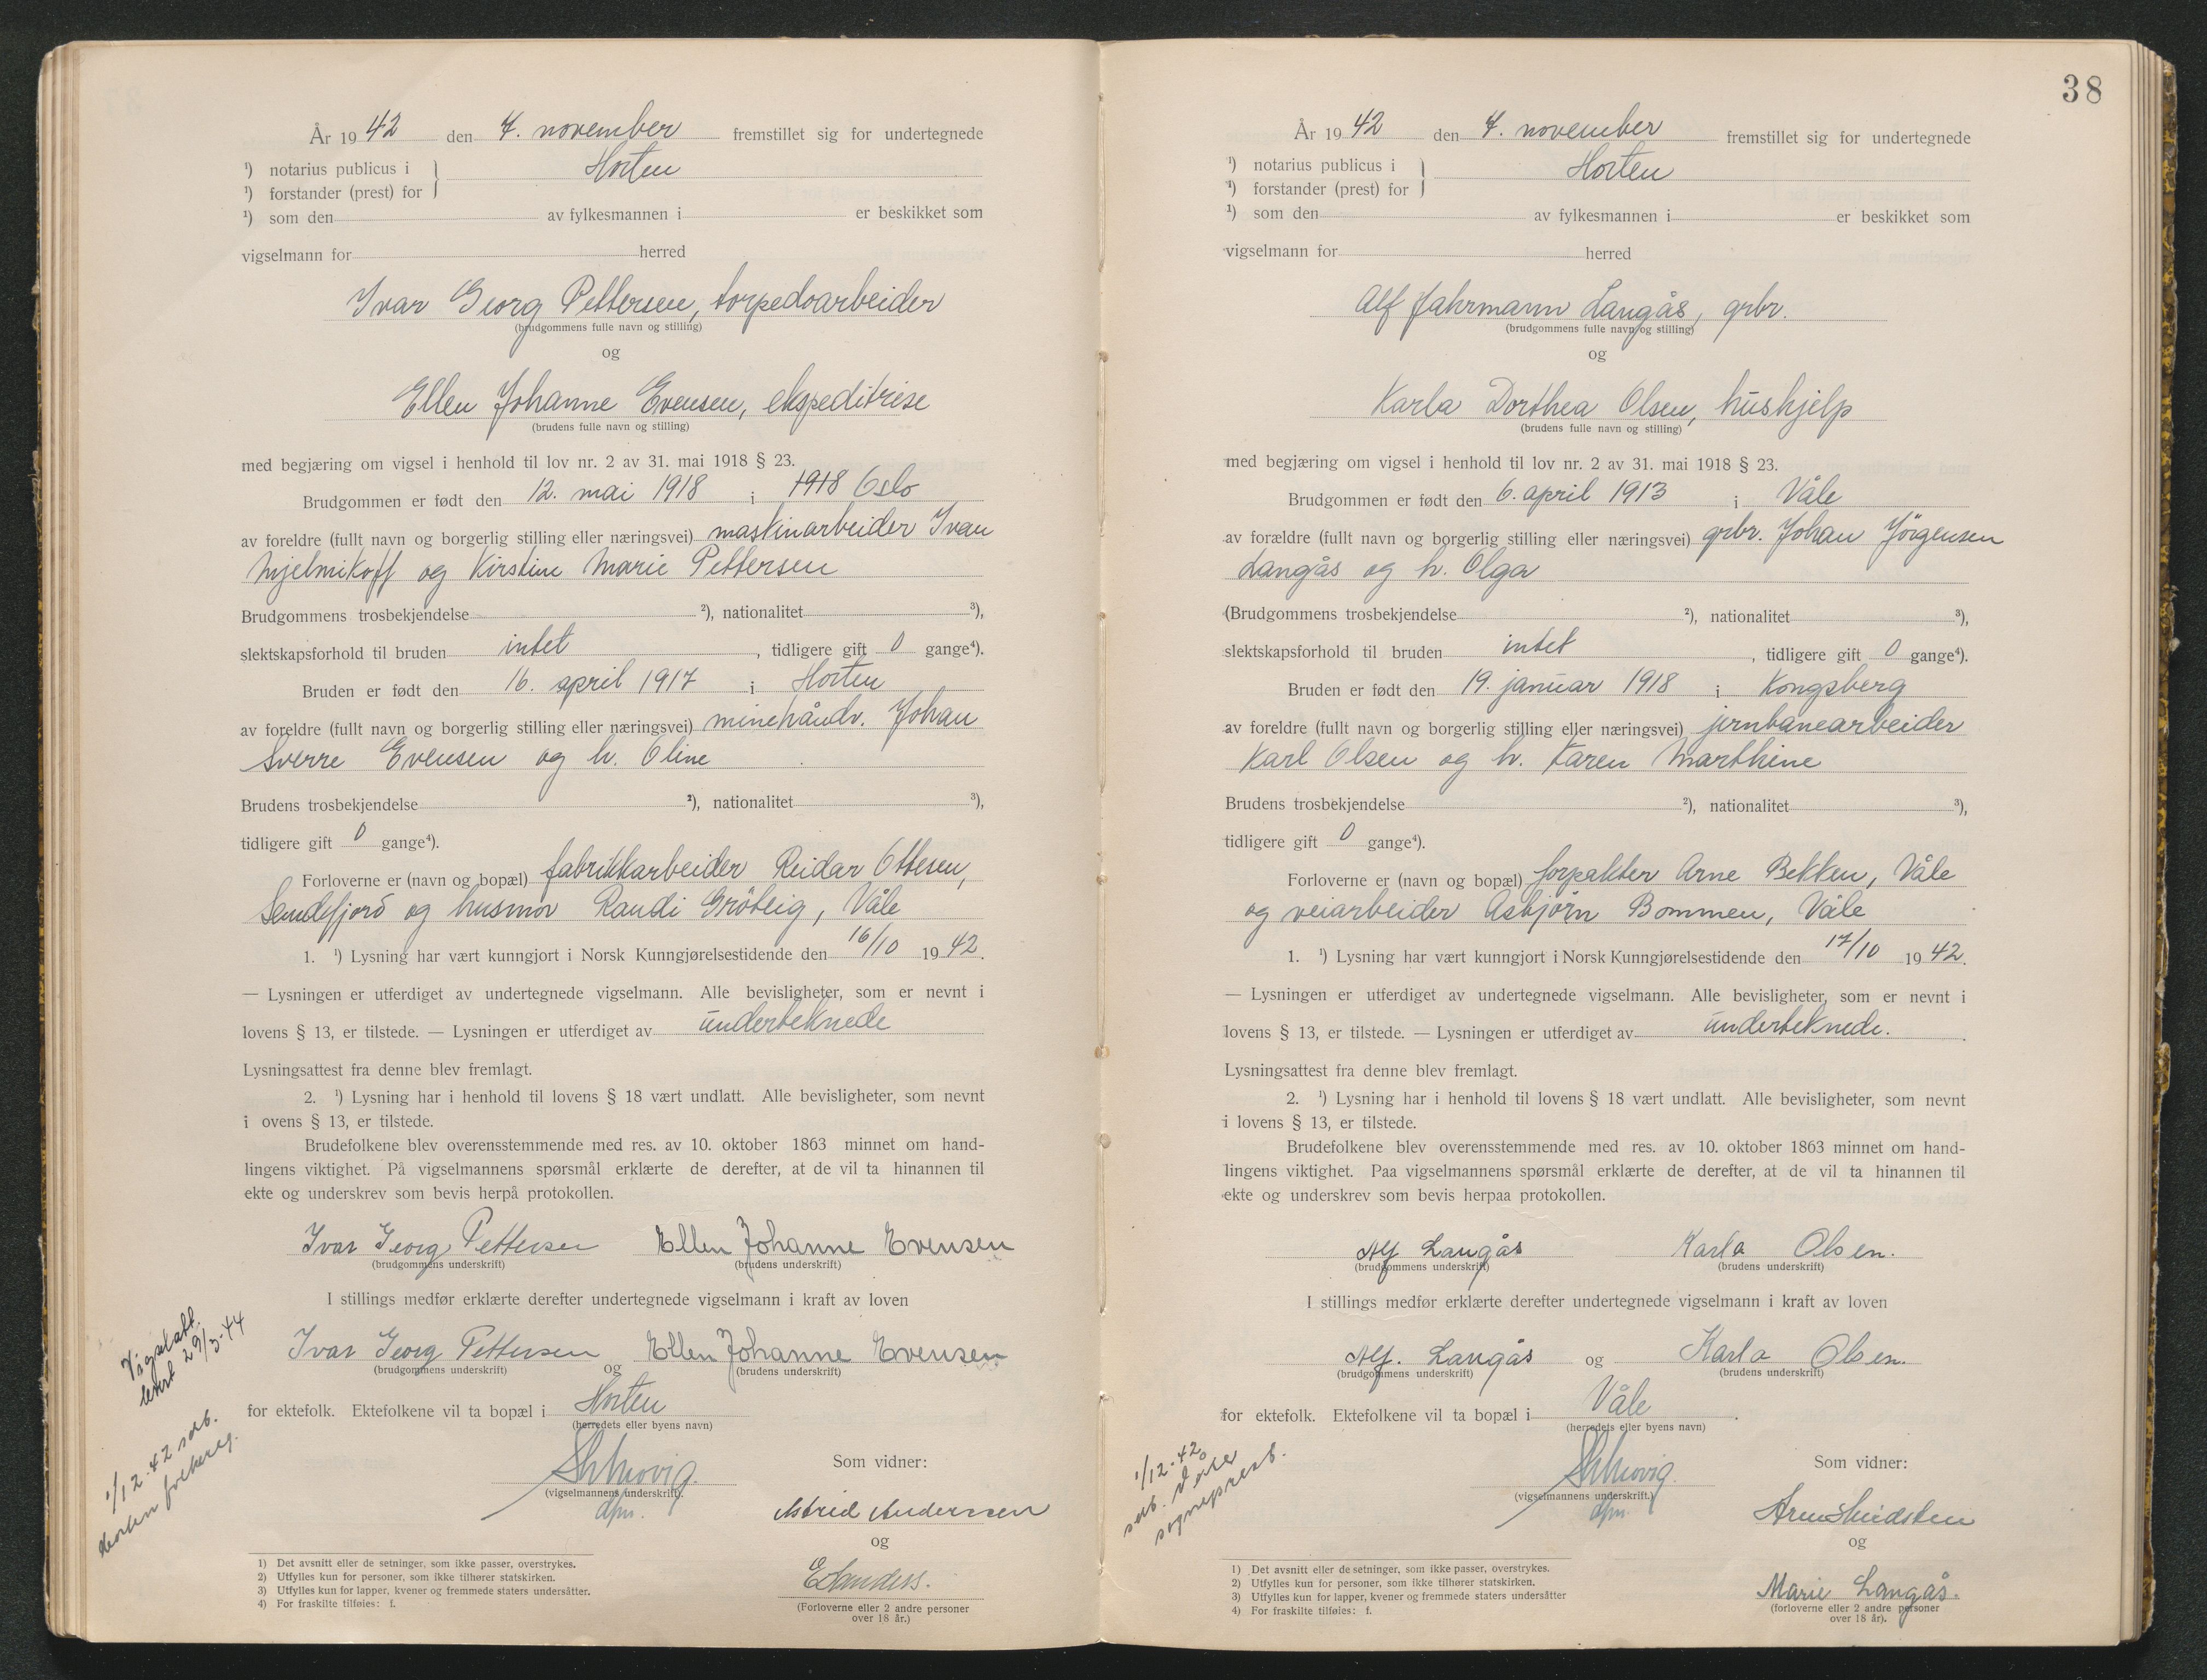 År 1942 den 7. november fremstillet sig for undertegnede
¹) notarius publicus i } Horten
¹) forstander (prest) for
¹) som den av fylkesmannen i er beskikket som
vigselmann for herred
Ivar Georg Pettersen, torpedoarbeider
(brudgommens fulle navn og stilling)
og
Ellen Johanne Evensen, ekspeditrise
(brudens fulle navn og stilling)
med begjæring om vigsel i henhold til lov nr. 2 av 31. mai 1918 § 23.
Brudgommen er født den 12. mai 1918 i 1918 Oslo
av foreldre (fullt navn og borgerlig stilling eller næringsvei) maskinarbeider Ivan
Mjelnikoff og Kirstine Marie Pettersen
Brudgommens trosbekjendelse ²), nationalitet ³),
slektskapsforhold til bruden intet, tidligere gift 0 gange⁴).
Bruden er født den 16. april 1917 i Horten
av foreldre (fullt navn og borgerlig stilling eller næringsvei) minehåndv. Johan
Sverre Evensen og h. Oline
Brudens trosbekjendelse ²), nationalitet ³),
tidligere gift 0 gange⁴).
Forloverne er (navn og bopæl) fabrikkarbeider Reidar Ottesen,
Sandefjord og husmor Randi Gröteig, Våle
1. ¹) Lysning har vært kunngjort i Norsk Kunngjørelsestidende den 16/10 1942.
— Lysningen er utferdiget av undertegnede vigselmann. Alle bevisligheter, som er nevnt i
lovens § 13, er tilstede. — Lysningen er utferdiget av underteknede
Lysningsattest fra denne blev fremlagt.
2. ¹) Lysning har i henhold til lovens § 18 vært undlatt. Alle bevisligheter, som nevnt
i ovens § 13, er tilstede.
Brudefolkene blev overensstemmende med res. av 10. oktober 1863 minnet om hand-
lingens viktighet. På vigselmannens spørsmål erklærte de derefter, at de vil ta hinannen til
ekte og underskrev som bevis herpå protokollen.
Ivar Georg Pettersen Ellen Johanne Evensen
(brudgommens underskrift) (brudens underskrift)
I stillings medfør erklærte derefter undertegnede vigselmann i kraft av loven
Ivar Georg Pettersen og Ellen Johanne Evensen
(brudgommens underskrift) (brudens underskrift)
for ektefolk. Ektefolkene vil ta bopæl i Horten
(herredets eller byens navn)
Som vidner:
(vigselmannens underskrift).
dfm.
Astrid Anderssen
og
(Forloverne eller 2 andre personer
over 18 år.)
Vigselatt.
levert 29/3-44
1/12-42 sdb.
Horten folkereg.
1) Det avsnitt eller de setninger, som ikke passer, overstrykes.
2) Utfylles kun for personer, som ikke tilhører statskirken.
3) Utfylles kun for lapper, kvener og fremmede staters undersåtter.
4) For fraskilte tilføies: f.
38
År 1942 den 7. november fremstillet sig for undertegnede
¹) notarius publicus i } Horten
¹) forstander (prest) for
¹) som den av fylkesmannen i er beskikket som
vigselmann for herred
Alf Fahrmann Langås, grbr.
(brudgommens fulle navn og stilling)
og
Karla Dorthea Olsen, hushjelp
(brudens fulle navn og stilling)
med begjæring om vigsel i henhold til lov nr. 2 av 31. mai 1918 § 23.
Brudgommen er født den 6. april 1913 i Våle
av forældre (fullt navn og borgerlig stilling eller næringsvei) grbr. Johan Jörgensen
Langås og h. Olga
(Brudgommens trosbekjendelse ²), nationalitet ³),
slektskapsforhold til bruden intet, tidligere gift 0 gange⁴).
Bruden er født den 19. januar 1918 i Kongsberg
av foreldre (fullt navn og borgerlig stilling eller næringsvei) jernbanearbeider
Karl Olsen og h. Karen Marthine
Brudens trosbekjendelse ²), nationalitet ³),
tidligere gift 0 gange⁴).
Forloverne er (navn og bopæl) forpakter Arne Bekken, Våle
og veiarbeider Asbjörn Bommen, Våle
1. ¹) Lysning har vært kunngjort i Norsk Kunngjørelsestidende den 17/10 1942.
— Lysningen er utferdiget av undertegnede vigselmann. Alle bevisligheter, som er nevnt i
lovens § 13, er tilstede. — Lysningen er utferdiget av underteknede.
Lysningsattest fra denne blev fremlagt.
2. ¹) Lysning har i henhold til lovens § 18 vært undlatt. Alle bevisligheter, som nevnt
i lovens § 13, er tilstede.
Brudefolkene blev overensstemmende med res. av 10. oktober 1863 minnet om hand-
lingens viktighet. Paa vigselmannens spørsmål erklærte de derefter, at de vil ta hinannen til
ekte og underskrev som bevis herpaa protokollen.
Alf Langås Karla Olsen.
(brudgommens underskrift) (brudens underskrift)
I stillings medfør erklærte derefter undertegnede vigselmann i kraft av loven
Alf. Langås og Karla Olsen.
(brudgommens underskrift) (brudens underskrift)
for ektefolk. Ektefolkene vil ta bopæl i Våle.
(herredets eller byens navn)
Som vidner:
(vigselmannens underskrift.)
dfm.
og
Marie Langås.
(forloverne eller 2 andre personer
over 18 år).
1/12-42
sdb. Våle
sogneprest.
1) Det avsnitt eller de setninger, som ikke passer, overstrykes.
2) Utfylles kun for personer, som ikke tilhører statskirken.
3) Utfylles kun for lapper, kvener og fremmede staters undersåtter
4) For fraskilte tilføies: f.